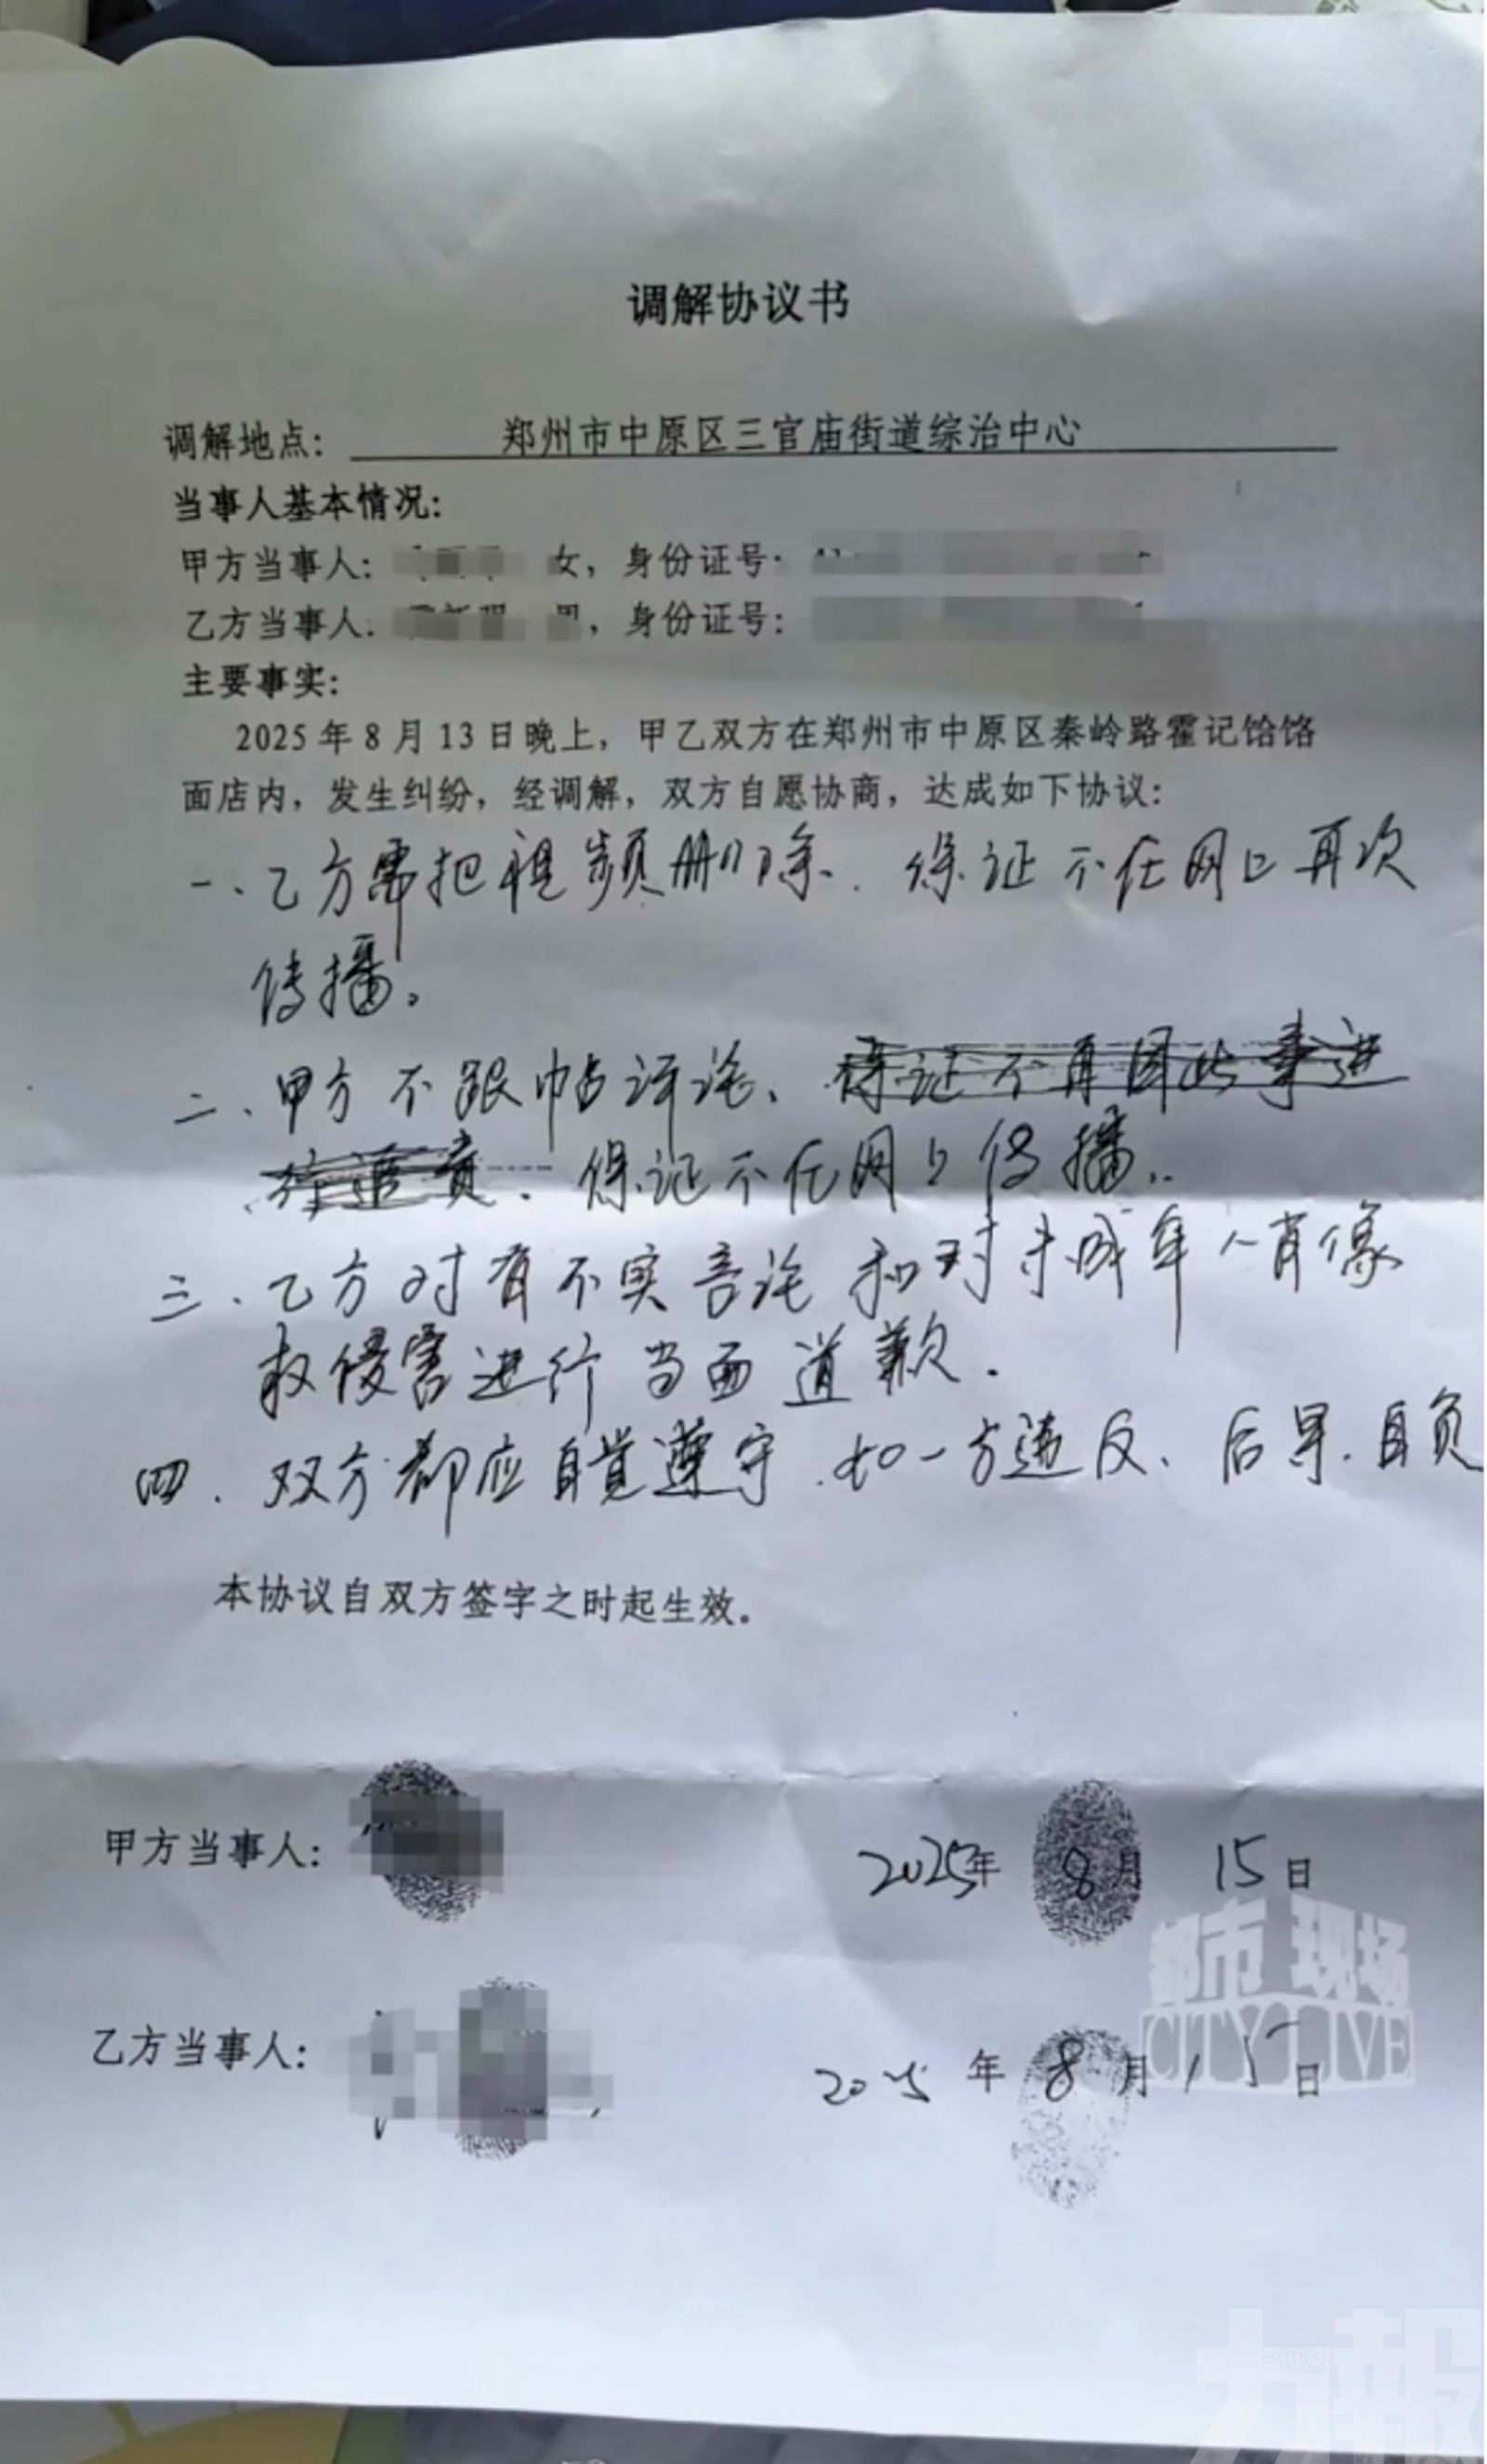 调解协议书
调解地点： 郑州市中原区三官庙街道综治中心
当事人基本情况：
甲方当事人： 女，身份证号：
乙方当事人： 男，身份证号：
主要事实：
2025年8月13日晚上，甲乙双方在郑州市中原区秦岭路霍记饸饹
面店内，发生纠纷，经调解，双方自愿协商，达成如下协议：
一、乙方需把视频删除、保证不在网上再次
传播。
二、甲方不跟帖评论、保证不再因此事进
行追责、保证不在网上传播。
三、乙方对有不实言论和对未成年人肖像
权侵害进行当面道歉.
四、双方都应自觉遵守.如一方违反、后果自负
本协议自双方签字之时起生效。
甲方当事人： 2025年 8月 15日
都市现场
CITY LIVE
乙方当事人： 2025年 8月 15日
力報
exmoo
news